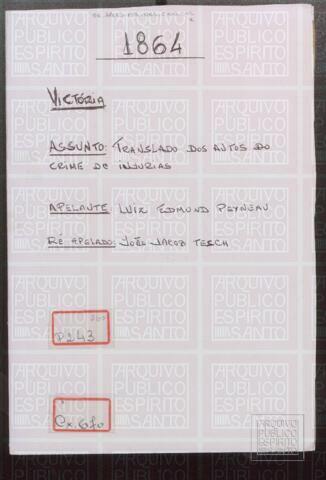 1864
VICTÓRIA
ASSUNTO: TRANSLADO DOS AUTOS DO
CRIME DE INJURIAS
APELANTE: LUIZ EDMOND PEYNEAU
RÉ APELADO: JOÃO JACOB TESCH
P243
Cx. 670
ARQUIVO
PÚBLICO
ESPÍRITO
SANTO